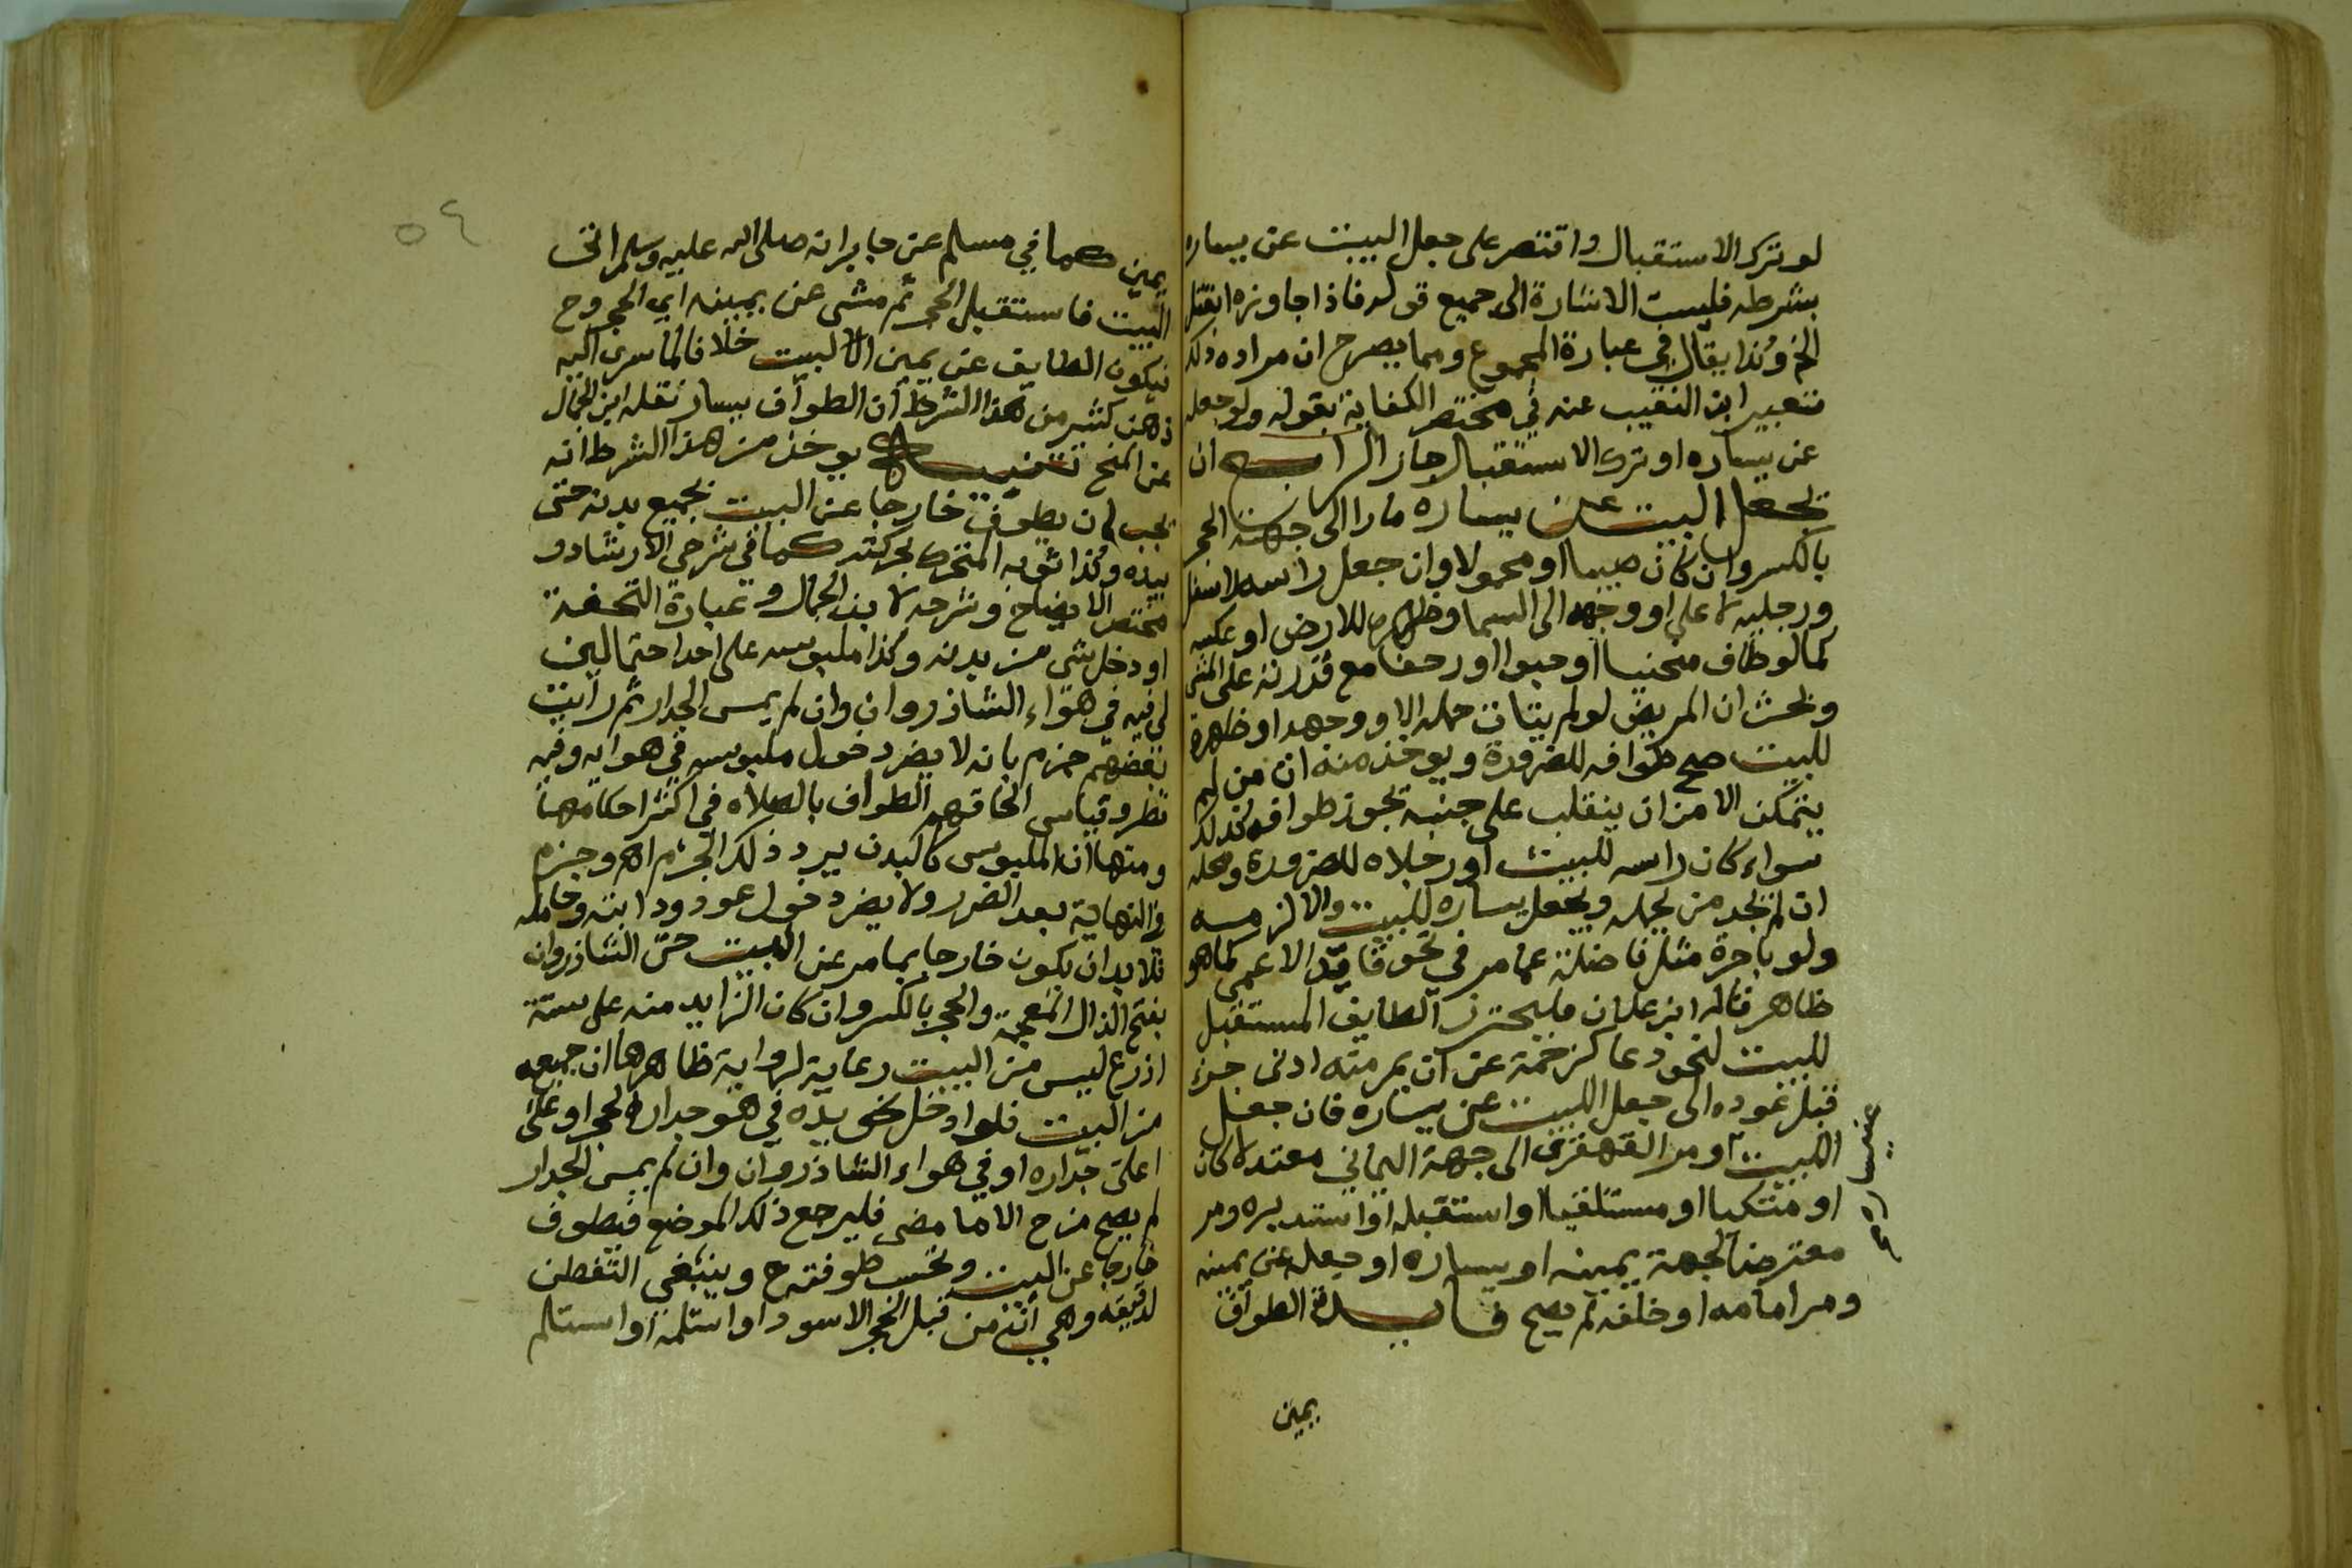 لو ترك الاستقبال واقتصر على جعل البيت عن يساره
بشرطه فليست الاشارة الى جميع قوله فاذا جاوزه انفتل
الخ وكذا يقال في عبارة المجموع ومما يصرح ان مراده ذلك
تعبير ابن النقيب عنه في مختصر الكفاية بقوله ولو جعله
عن يساره او ترك الاستقبال جاز الرابع ان
يجعل البيت عن يساره مارا الى جهة الحجر
بالكسر وان كان صبيا او محمولا وان جعل راسه لاسفل
ورجليه لاعلى او وجهه الى السما وظهره للارض او عكسه
كما لو طاف منحنيا او حبوا او زحفا مع قدرته على المشي
وبحث ان المريض لو لم يتات حمله الا ووجهه او ظهره
للبيت صح طوافه للضرورة ويوخذ منه ان من لم
يتمكن الا من ان ينقلب على جنبه يجوز طوافه كذلك
سواء كان راسه للبيت او رجلاه للضرورة ومحله
ان لم يجد من يحمله ويجعل يساره للبيت والا لزمه
ولو باجرة مثل فاضلة عما مر في نحو قايد الاعمى كما هو
ظاهر قاله ابن علان فليحترز الطايف المستقبل
للبيت لنحو دعا كزحمة عن ان يمر منه ادنى جزء
قبل عوده الى جعل البيت عن يساره فان جعل
البيت او مر القهقرى الى جهة اليماني معتدلا كان
او منتكسا او مستلقيا او استقبله او استدبره ومر
معترضا لجهة يمينه او يساره او جعله عن يمينه
ومر امامه او خلفه لم يصح فايدة الطواف
يمين
٥٤
يمين كما في مسلم عن جابر انه صلى الله عليه وسلم اتى
البيت فاستقبل الحجر ثم مشى عن يمينه اي الحجر وح
فيكون الطايف عن يمين البيت خلافا لما سرى اليه
ذهن كثير من هذا الشرط ان الطواف يسار نقله ابن الجمال
عن المنح تنبيه يوخذ من هذا الشرط انه
يجب ان يطوف خارجا عن البيت بجميع بدنه حتى
بيده وكذا ثوبه المتحرك بحركته كما في شرحي الارشاد و
مختصر الايضاح وشرحه لابن الجمال وعبارة التحفة
او دخل شي من بدنه وكذا ملبوسه على احد احتمالين
لي فيه في هواء الشاذروان وان لم يمس الجدار ثم رايت
بعضهم جزم بانه لا يضر دخول ملبوسه في هوايه وفيه
نظر وقياس الحاقهم الطواف بالصلاه في اكثر احكامها
ومنها ان الملبوس كالبدن يرد ذلك الجزم اه وجزم
في النهاية بعد الضرر ولا يضر دخول عود ودابته وحامله
فلا بد ان يكون خارجا بما مر عن البيت حتى الشاذروان
بفتح الذال المعجمة والحجر بالكسر وان كان الزايد منه على ستة
اذرع ليس من البيت رعاية لرواية ظاهرها ان جميعه
من البيت فلو ادخل نحو يده في هو جدار الحجر او على
اعلى جداره او في هواء الشاذروان وان لم يمس الجدار
لم يصح من ح الا ما مضى فليرجع ذلك الموضع فيطوف
خارجا عن البيت وتحسب طوفته ح وينبغي التفطن
لدقيقه وهي ان من قبل الحجر الاسود او استلمه او استلم